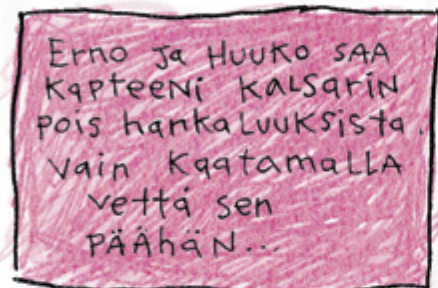 Erno ja HUUKO SAA
KAPTEENI KALSARIN
pois hankaLUUKSISTA.
VAIN KAATAMALLA
VETTÄ SEN
PÄÄHÄN...